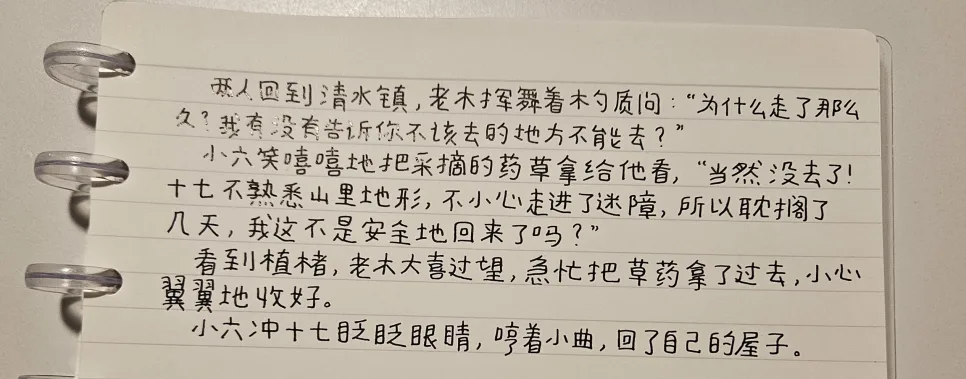 两人回到清水镇，老木挥舞着木勺质问：“为什么走了那么
久？我有没有告诉你不该去的地方不能去？”
小六笑嘻嘻地把采摘的药草拿给他看，“当然没去了！
十七不熟悉山里地形，不小心走进了迷障，所以耽搁了
几天，我这不是安全地回来了吗？”
看到植楮，老木大喜过望，急忙把草药拿了过去，小心
翼翼地收好。
小六冲十七眨眨眼睛，哼着小曲，回了自己的屋子。